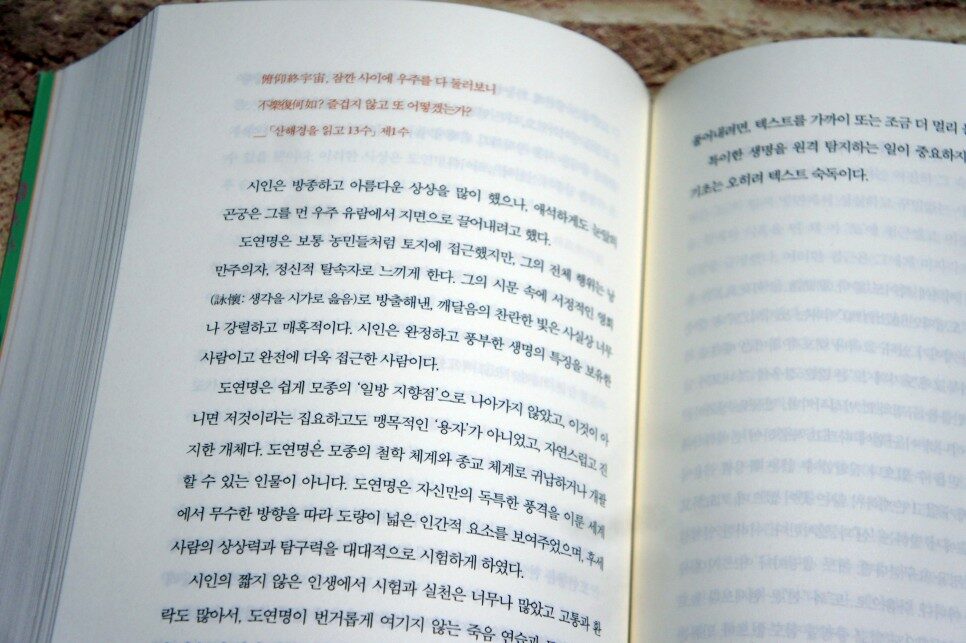 俯仰終宇宙, 잠깐 사이에 우주를 다 둘러보니
不樂復何如? 즐겁지 않고 또 어떻겠는가?
—「산해경을 읽고 13수」 제1수
시인은 방종하고 아름다운 상상을 많이 했으나, 애석하게도 눈앞의
곤궁은 그를 먼 우주 유람에서 지면으로 끌어내려고 했다.
도연명은 보통 농민들처럼 토지에 접근했지만, 그의 전체 행위는 낭
만주의자, 정신적 탈속자로 느끼게 한다. 그의 시문 속에 서정적인 영회
(詠懷: 생각을 시가로 읊음)로 방출해낸, 깨달음의 찬란한 빛은 사실상 너무
나 강렬하고 매혹적이다. 시인은 완정하고 풍부한 생명의 특징을 보유한
사람이고 완전에 더욱 접근한 사람이다.
도연명은 쉽게 모종의 ‘일방 지향점’으로 나아가지 않았고, 이것이 아
니면 저것이라는 집요하고도 맹목적인 ‘용자’가 아니었고, 자연스럽고 진
지한 개체다. 도연명은 모종의 철학 체계와 종교 체계로 귀납하거나 개괄
할 수 있는 인물이 아니다. 도연명은 자신만의 독특한 풍격을 이룬 세계
에서 무수한 방향을 따라 도량이 넓은 인간적 요소를 보여주었으며, 후세
사람의 상상력과 탐구력을 대대적으로 시험하게 하였다.
시인의 짧지 않은 인생에서 시험과 실천은 너무나 많았고 고통과 환
락도 많아서, 도연명이 번거롭게 여기지 않는 죽음 연습과
풀어내려면, 텍스트를 가까이 또는 조금 더 멀리
특이한 생명을 원격 탐지하는 일이 중요하지
기초는 오히려 텍스트 숙독이다.